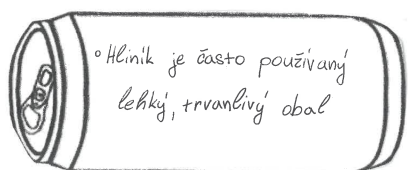 ° Hliník je často používaný
lehký, trvanlivý obal